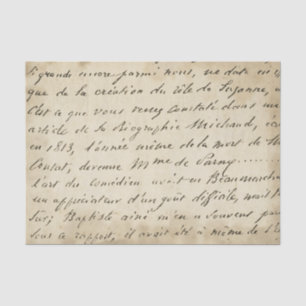 si grande encore parmi nous, ne date en
que de la création du rôle de Suzanne,
C'est ce que vous verrez constaté dans un
article de la Biographie Michaud,
en 1813, l'année même de la mort de
Contat, devenue Mme de Parny
l'art du comédien avait en Beaumarchais
un appréciateur d'un goût difficile, mais
sur; Baptiste ainé m'en a souvent
sous ce rapport, il avait été à même de l'